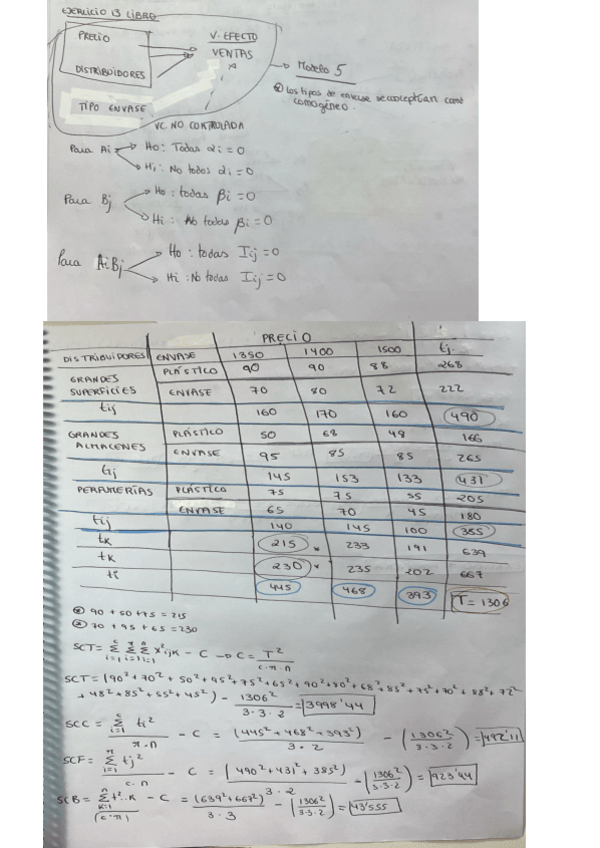 EJERCICIO 13 LIBRO
PRECIO
V. EFECTO
VENTAS
DISTRIBUIDORES
→ Modelo 5
⊛ Los tipos de envase se conceptúan como
homogéneo.
TIPO ENVASE
VC NO CONTROLADA
Para Ai
Ho: Todas αi = 0
Hi: No todas αi = 0
Para Bj
Ho: todas βi = 0
Hi: No todas βi = 0
Para AiBj
Ho: todas Iij = 0
Hi: No todas Iij = 0
PRECIO
DISTRIBUIDORES ENVASE 1350 1400 1500 tj.
GRANDES SUPERFICIES PLÁSTICO 90 90 88 268
ENVASE 70 80 72 222
tij 160 170 160 490
GRANDES ALMACENES PLÁSTICO 50 68 48 166
ENVASE 95 85 85 265
tij 145 153 133 431
PERFUMERÍAS PLÁSTICO 75 75 55 205
ENVASE 65 70 45 180
tij 140 145 100 385
tk 215 * 233 191 639
tk 230 * 235 202 667
ti 445 468 393 T = 1306
⊛ 90 + 50 + 75 = 215
⊛ 70 + 95 + 65 = 230
SCT = Σ Σ Σ x²ijk - C → C = T² / c·r·n
SCT = (90² + 70² + 50² + 95² + 75² + 65² + 90² + 80² + 68² + 85² + 75² + 70² + 88² + 72²
+ 48² + 85² + 55² + 45²) - 1306² / 3·3·2 = 3998'44
SCC = Σ ti² / r·n - C = (445² + 468² + 393²) / 3·2 - (1306² / 3·3·2) = 492'11
SCF = Σ tj² / c·n - C = (490² + 431² + 385²) / 3·2 - (1306² / 3·3·2) = 923'44
SCB = Σ t²..k / (c·r) - C = (639² + 667²) / 3·3 - (1306² / 3·3·2) = 43'555